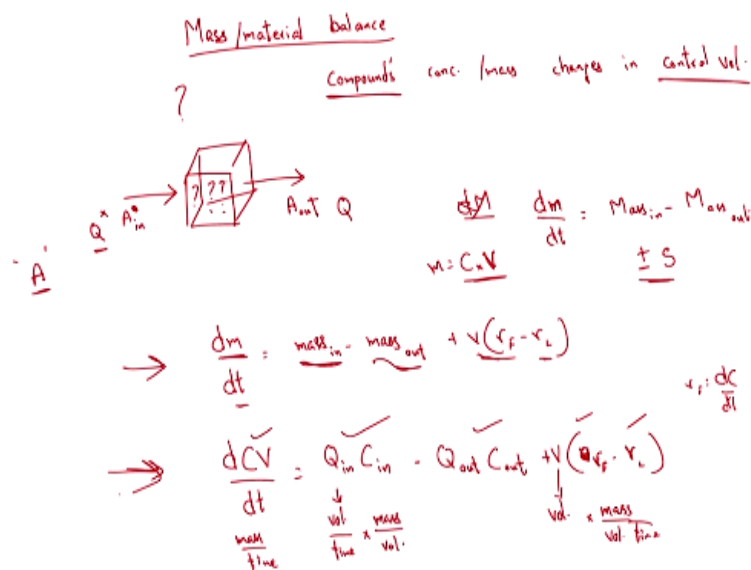 Mass/material balance
Compound's conc. /mass changes in control vol.
?
? ? ?
Q* A°in Aout Q
"A"
dM dm/dt = Mass in - Mass out
m = C x V ± S
→ dm/dt = mass in - mass out + V(rF - rL)
rF = dC/dt
→ dCV/dt = Qin Cin - Qout Cout + V(rF - rL)
mass/time vol/time x mass/vol. vol. x mass/vol. time